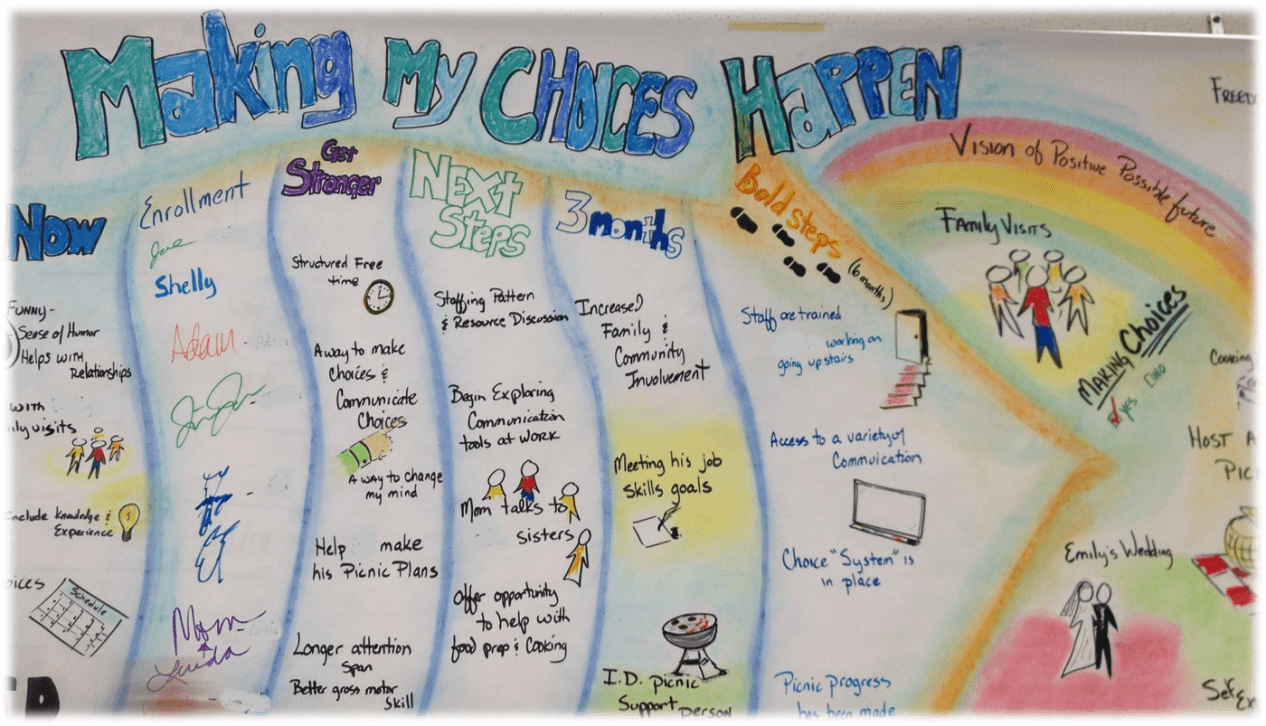 Making My CHOICES HAPPEN
NOW
FUNNY-
Sense of Humor
Helps with
Relationships
WITH
ily visits
Include Knowledge &
Experience
oices
Schedule
Enrollment
Jane
Shelly
Adam
Mom
&
Linda
Get
Stronger
Structured Free
time
A way to make
choices &
Communicate
Choices
A way to change
my mind
Help make
his Picnic Plans
Longer attention
Span
Better gross motor
Skill
NEXT
Steps
Staffing Pattern
& Resource Discussion
Begin Exploring
Communication
tools at WORK
Mom talks to
sisters
Offer opportunity
to help with
food prep & Cooking
3 months
Increased
Family &
Community
Involvement
Meeting his job
skills goals
I.D. picnic
Support person
Bold Steps
(6 months)
Staff are trained
working on
going up stairs
Access to a variety of
Commuication
Choice "System" is
in place
Picnic progress
has been made
Vision of Positive Possible future
FREEDO
FAMILY VISITS
MAKING CHOICES
YES NO
Cooking
HOST A
PIC
Emily's Wedding
Self Ex